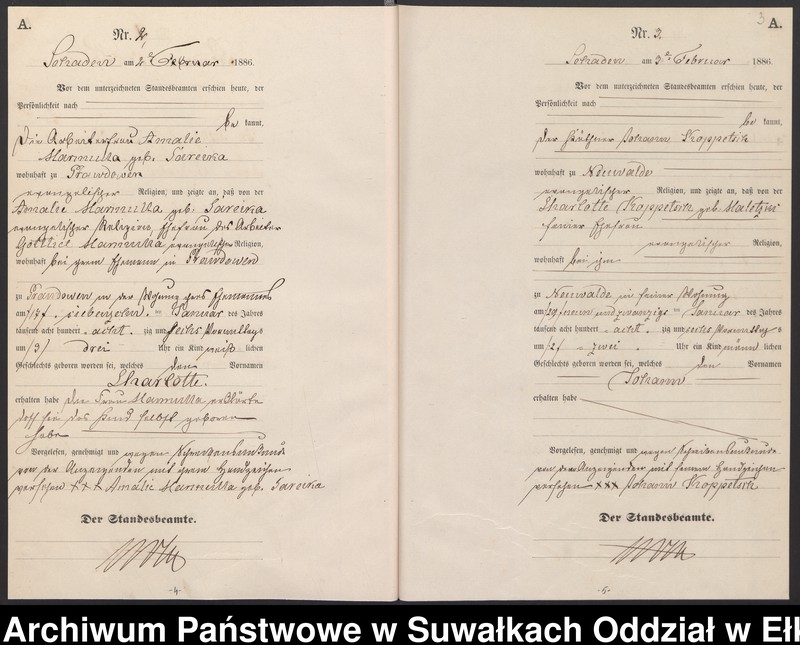 A.
Nr. 2.
am 2 Februar 1886.
Vor dem unterzeichneten Standesbeamten erschien heute, der
Persönlichkeit nach
be kannt,
die Arbeiterfrau Amalie
geb.
wohnhaft zu Prawdowen
evangelischer Religion, und zeigte an, daß von der
Amalie geb.
evangelischer Religion, Ehefrau des Arbeiter
Gottlieb evangelischer Religion,
wohnhaft bei ihrem Ehemann in Prawdowen
zu Prawdowen in der Wohnung ihres Ehemannes
am /17/. siebenzehn. ten Januar des Jahres
tausend acht hundert acht. zig und sechs Vormittags
um /3/ drei Uhr ein Kind weib lichen
Geschlechts geboren worden sei, welches den Vornamen
Charlotte.
erhalten habe die Frau erklärte
daß sie das Kind selbst geboren
habe
Vorgelesen, genehmigt und wegen Schreibensunkunde
von der Anzeigenden mit ihrem Handzeichen
versehen xxx Amalie geb.
Der Standesbeamte.
-4-
3
A.
Nr. 3.
am 3 Februar 1886
Vor dem unterzeichneten Standesbeamten erschien heute, der
Persönlichkeit nach
be kannt,
der Käthner Johann Koppetsch
wohnhaft zu Neuwalde
evangelischer Religion, und zeigte an, daß von der
Charlotte Koppetsch geb.
seiner Ehefrau
evangelischer Religion,
wohnhaft bei ihm
zu Neuwalde in seiner Wohnung
am /29/ neun und zwanzigs ten Januar des Jahres
tausend acht hundert acht. zig und sechs Vormittags
um /2/ zwei Uhr ein Kind männ lichen
Geschlechts geboren worden sei, welches den Vornamen
Johann
erhalten habe
Vorgelesen, genehmigt und wegen Schreibensunkunde
von dem Anzeigenden mit seinem Handzeichen
versehen xxx Johann Koppetsch
Der Standesbeamte.
-5-
Archiwum Państwowe w Suwałkach Oddział w Ełk